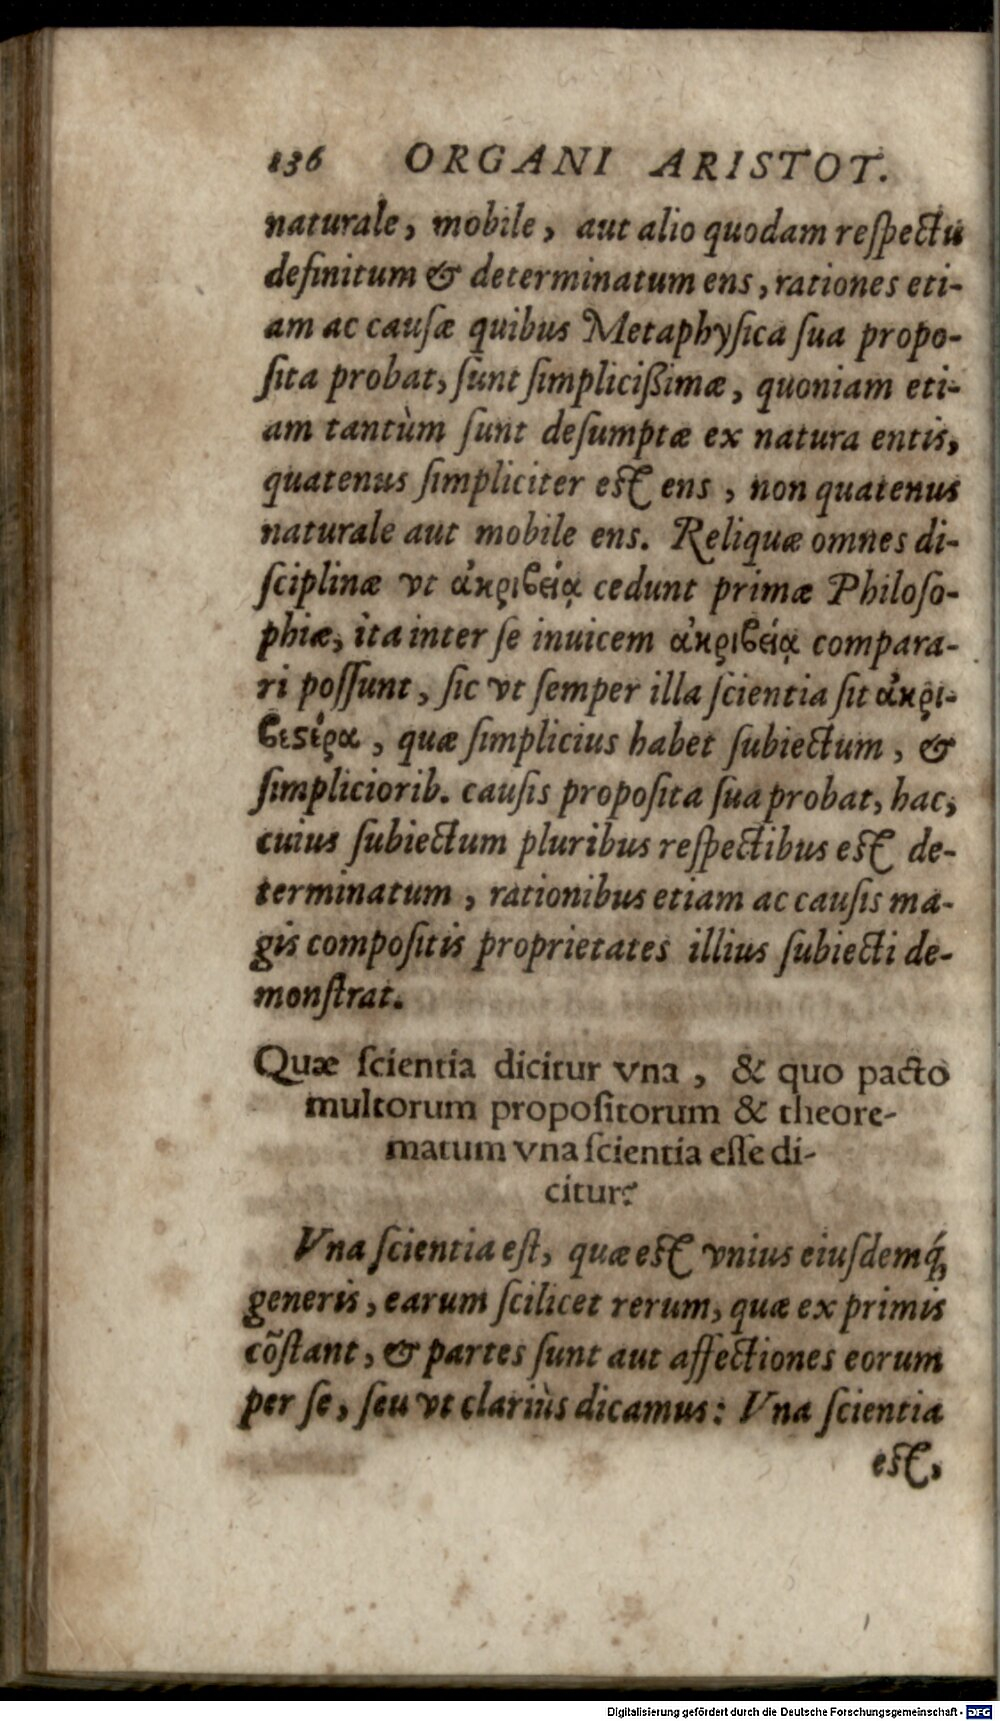 136 ORGANI ARISTOT.
naturale, mobile, aut alio quodam reſpectu
definitum & determinatum ens, rationes eti-
am ac cauſæ quibus Metaphyſica ſua propo-
ſita probat, ſunt ſimpliciſſimæ, quoniam eti-
am tantùm ſunt deſumptæ ex natura entis,
quatenus ſimpliciter eſt ens, non quatenus
naturale aut mobile ens. Reliquæ omnes di-
ſciplinæ vt ἀκριϐείᾳ cedunt primæ Philoſo-
phiæ, ita inter ſe inuicem ἀκριϐείᾳ compara-
ri poſſunt, ſic vt ſemper illa ſcientia ſit ἀκρι-
ϐεϛέρα, quæ ſimplicius habet ſubiectum, &
ſimpliciorib. cauſis propoſita ſua probat, hac,
cuius ſubiectum pluribus reſpectibus eſt de-
terminatum, rationibus etiam ac cauſis ma-
gis compoſitis proprietates illius ſubiecti de-
monſtrat.
Quæ ſcientia dicitur vna, & quo pacto
multorum propoſitorum & theore-
matum vna ſcientia eſſe di-
citur?
Vna ſcientia eſt, quæ eſt vnius eiuſdemq́;
generis, earum ſcilicet rerum, quæ ex primis
cõſtant, & partes ſunt aut affectiones eorum
per ſe, ſeu vt clariùs dicamus: Vna ſcientia
eſt,
Digitalisierung gefördert durch die Deutsche Forschungsgemeinschaft - DFG